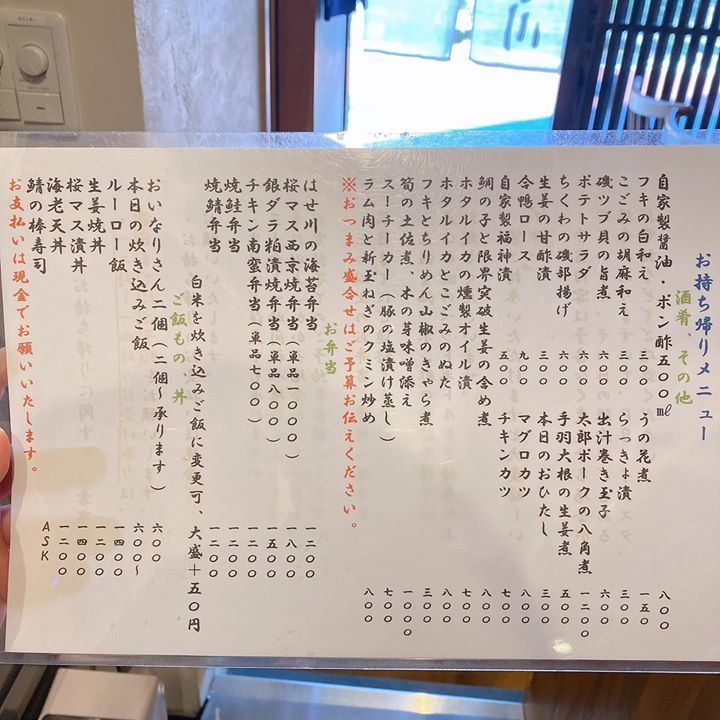 お持ち帰りメニュー
酒肴、その他
自家製醤油・ポン酢五〇〇㎖ 八〇〇
フキの白和え 三〇〇 うの花煮 一五〇
こごみの胡麻和え 三〇〇 らっきょ漬 三〇〇
磯ツブ貝の旨煮 六〇〇 出汁巻き玉子 六〇〇
ポテトサラダ 六〇〇 太郎ポークの八角煮 一二〇〇
ちくわの磯部揚げ 六〇〇 手羽大根の生姜煮 五〇〇
生姜の甘酢漬 三〇〇 本日のおひたし 三〇〇
合鴨ロース 九〇〇 マグロカツ 八〇〇
自家製福神漬 五〇〇 チキンカツ 七〇〇
鯛の子と限界突破生姜の含め煮 八〇〇
ホタルイカの燻製オイル漬 七〇〇
ホタルイカとこごみのぬた 八〇〇
フキとちりめん山椒のきゃら煮 三〇〇
筍の土佐煮、木の芽味噌添え 一〇〇〇
スーチーカー(豚の塩漬け蒸し) 七〇〇
ラム肉と新玉ねぎのクミン炒め 八〇〇
※おつまみ盛合せはご予算お伝えください。
お弁当
はせ川の海苔弁当 一二〇〇
桜マス西京焼弁当(単品一〇〇〇) 一八〇〇
銀ダラ粕漬焼弁当(単品八〇〇) 一五〇〇
チキン南蛮弁当(単品七〇〇) 一二〇〇
焼鮭弁当 一二〇〇
焼鯖弁当 一二〇〇
白米を炊き込みご飯に変更可、大盛+五〇円
ご飯もの、丼
おいなりさん二個(二個〜承ります) 六〇〇
本日の炊き込みご飯 六〇〇〜
ルーロー飯 一四〇〇
生姜焼丼 一二〇〇
桜マス漬丼 一四〇〇
海老天丼 一二〇〇
鯖の棒寿司 ASK
お支払いは現金でお願いいたします。